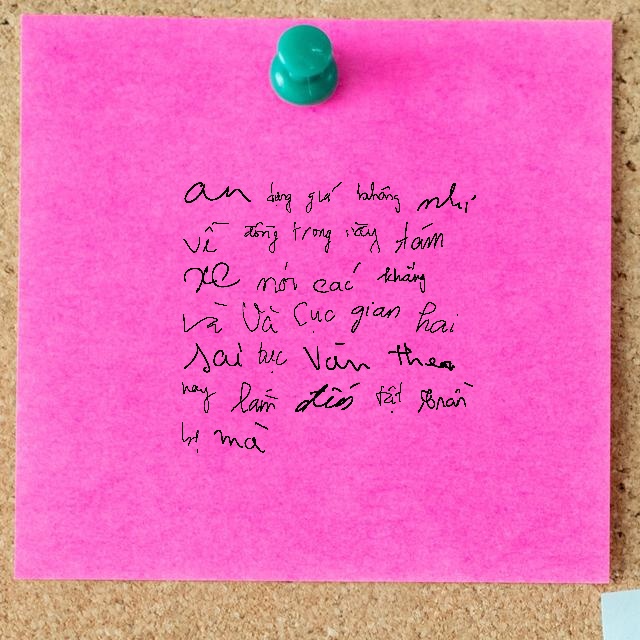 an dụng giá không nhị
về đồng trong vậy tám
xe nói các khẳng
và Và Cục gian hai
sai tục Văn theo
nay làm tật toàn
bị mà